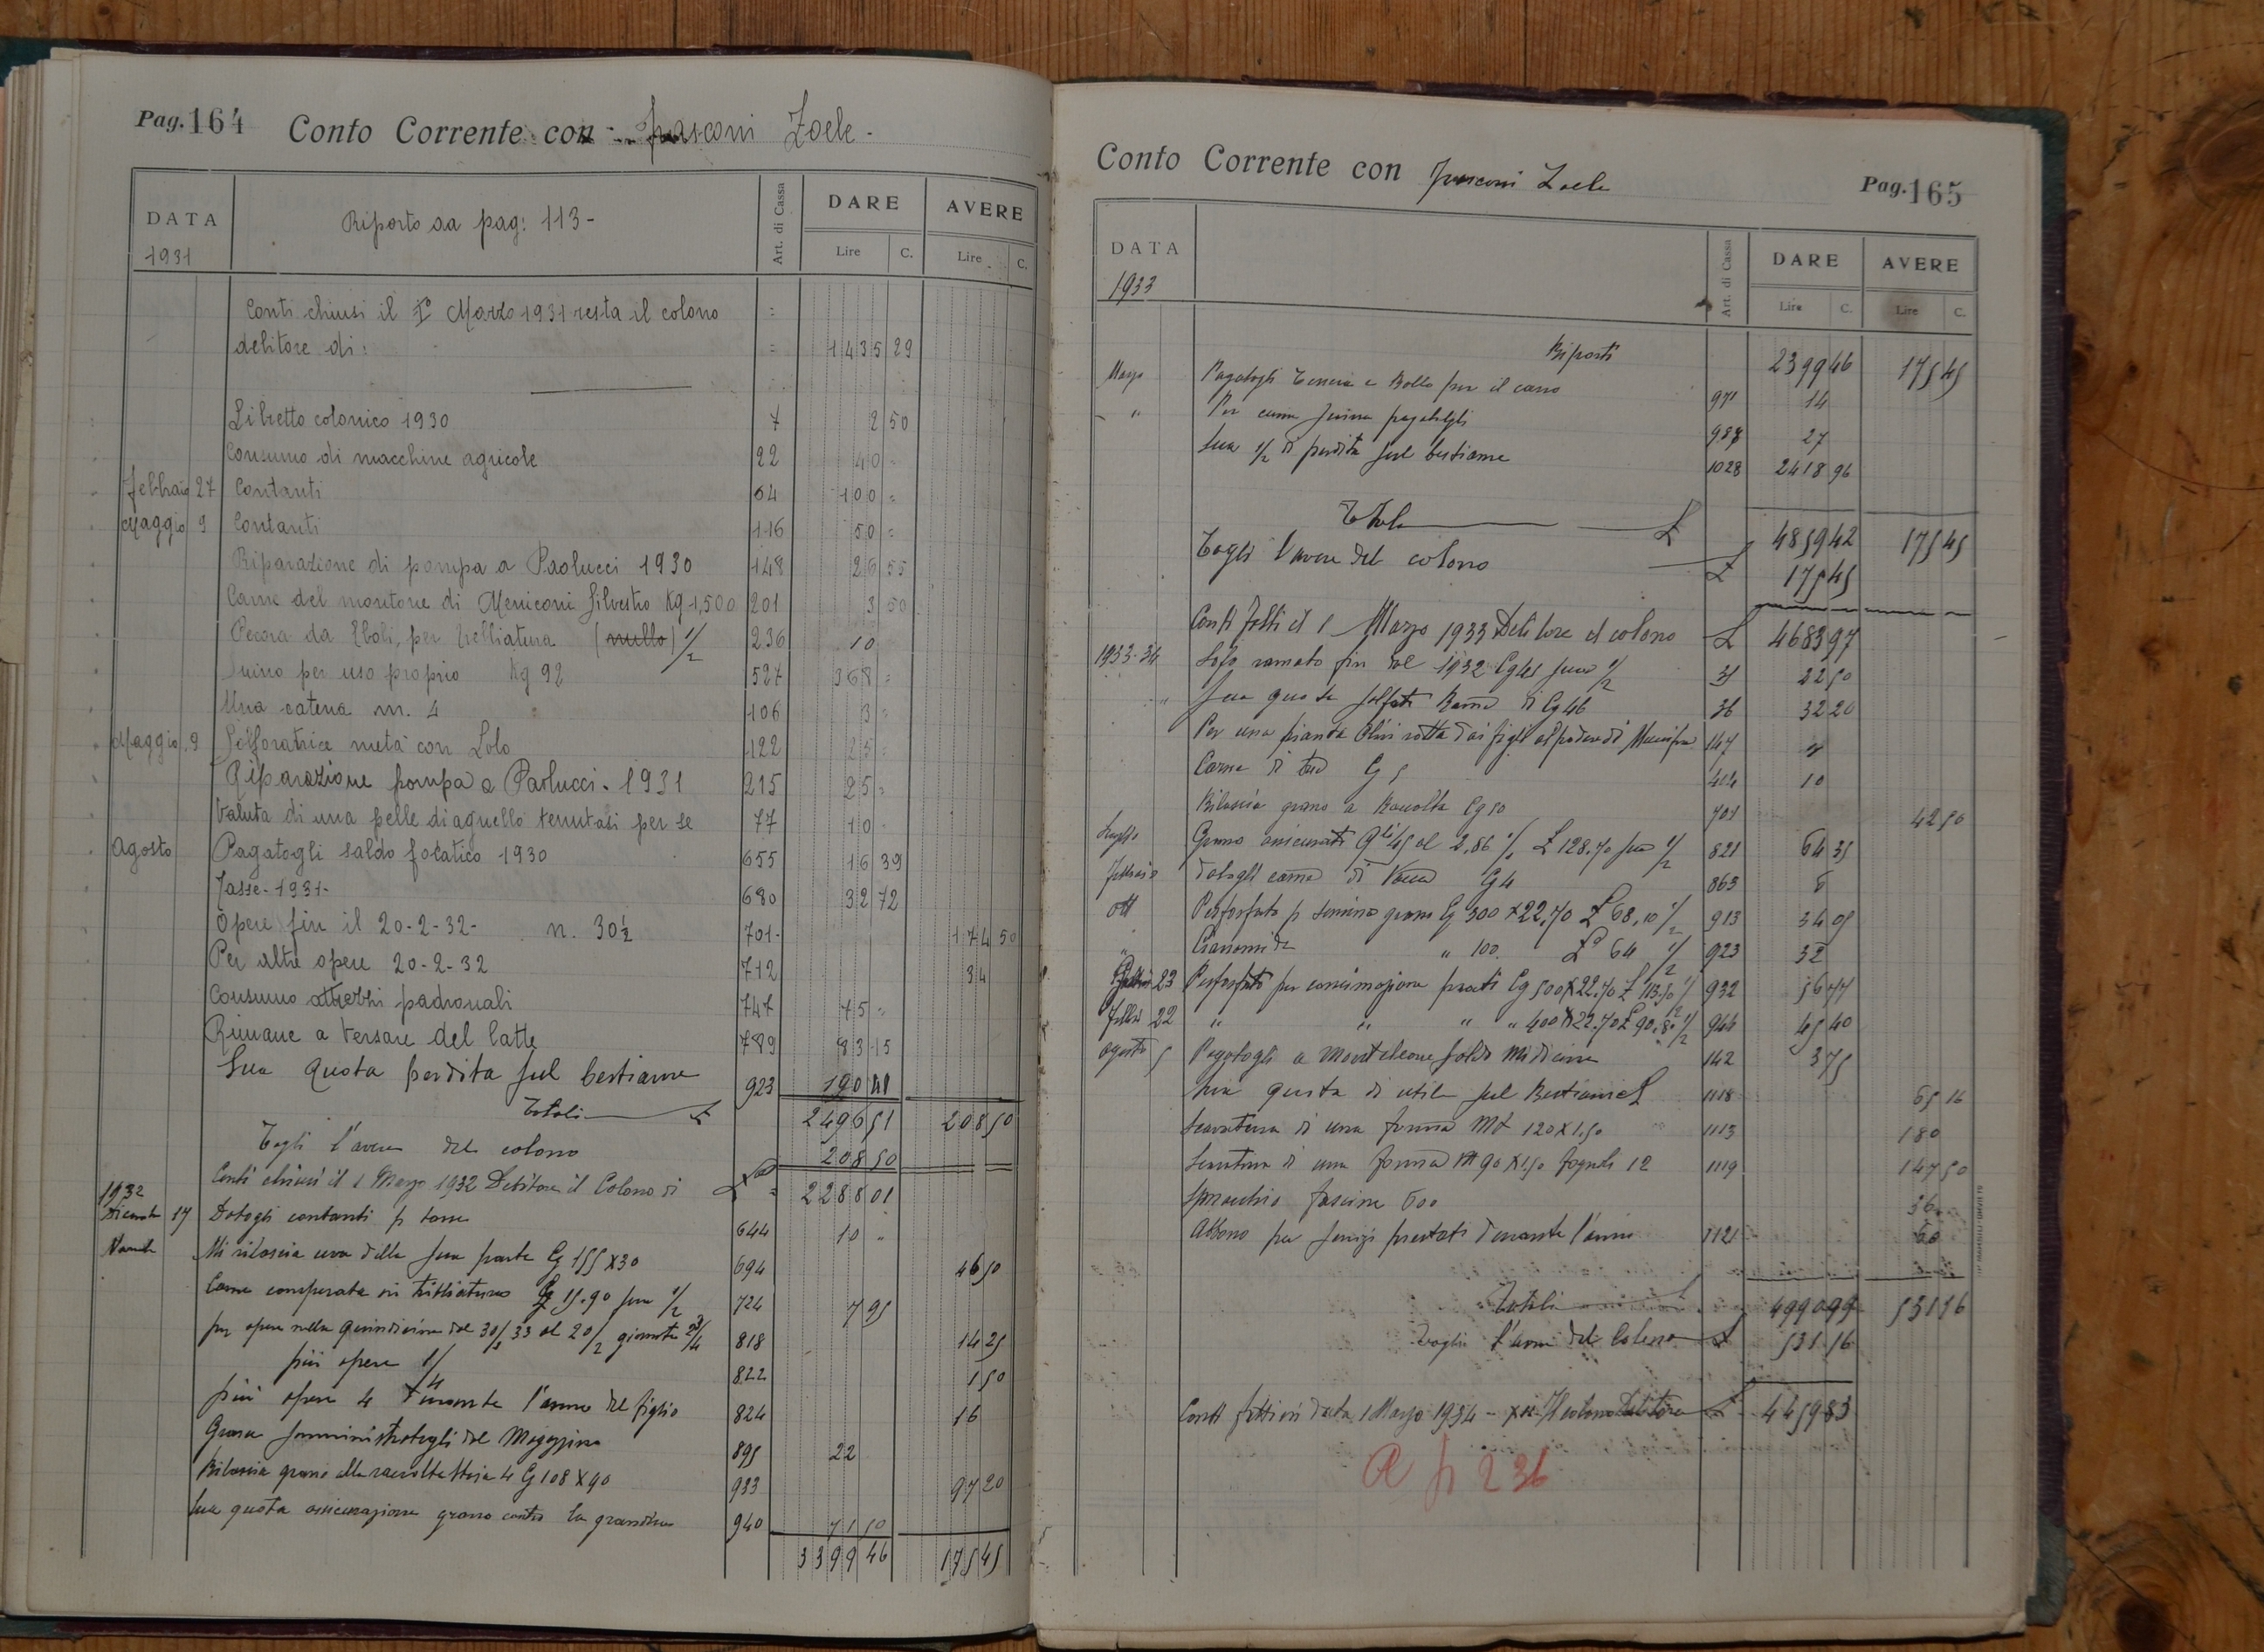 Pag. 164 Conto Corrente con Frasconi Zoele -
DATA Riporto da pag: 113- Art. di Cassa DARE AVERE
1931 Lire C. Lire C.
Conti chiusi il 1° Marzo 1931 resta il colono =
debitore di: = 1435 29
Libretto colonico 1930 7 2 50
Consumo di macchine agricole 22 40 -
Febbraio 27 Contanti 64 100 =
Maggio 9 Contanti 116 50 =
Riparazione di pompa a Paolucci 1930 148 26 55
Carne del montone di Meniconi Silvestro Kg 1,500 201 3 50
Pecora da Eboli, per trebbiatura (nullo) 1/2 236 10
Suino per uso proprio Kg 92 527 368 =
Una catena m. 4 106 3 =
Maggio 9 Solforatrice metà con Lolo 122 25 =
Riparazione pompa a Paolucci - 1931 215 25 =
Valuta di una pelle di agnello tenutasi per se 77 10 -
Agosto Pagatogli saldo focatico 1930 655 16 39
Tasse - 1931 - 680 32 72
Opere fin il 20-2-32- n. 30 1/2 701- 174 50
Per altre opere 20-2-32 712 34
Consumo attrezzi padronali 747 75 =
Rimane a versare del latte 789 83 15
Sua quota perdita sul bestiame 923 190 41
Totali £ 2496 51 208 50
Togli l'avere del colono 208 50
Conti chiusi il 1 Marzo 1932 Debitore il Colono di £ 2288 01
1932
17 Datogli contanti p tasse 644 10 "
Mi rilascia uva della sua parte Cg 155 x 30 694 46 50
Carne comperata in trebbiatura Cg 15.90 sua 1/2 724 7 95
per opere nella quindicina dal 30/1 33 al 20/2 giornate 818 14 25
più opere 1/4 822 1 50
più opere 4 durante l'anno del figlio 824 16
Grasso somministratogli dal Magazzino 895 22
Rilascia grano alla raccolta Staia 4 Cg 108 x 90 933 97 20
Sua quota assicurazione grano contro la grandine 940 71 50
3399 46 175 45
Conto Corrente con Frasconi Zoele Pag. 165
DATA Art. di Cassa DARE AVERE
1933 Lire C. Lire C.
Riporti 2399 46 175 45
Marzo Pagatogli Tessera e Bollo per il cane 971 14
" Per carne suina pagatagli 987 27
Sua 1/2 di perdita sul bestiame 1028 2418 96
Totale £ 4859 42 175 45
Togli l'avere del colono £ 175 45
Conti fatti il 1 Marzo 1933 Debitore il colono £ 4683 97
1933-34 Solfo ramato fin dal 1932 Cg 45 sua 1/2 31 22 50
" Sua quota solfato Rame di Cg 46 36 32 20
Per una pianta Olivi rotta dai figli al podere di 147
Carne di Cg 5 404 10
Rilascia grano a Raccolta Cg 50 701 42 50
Luglio Grano assicurato Qli 45 al 2,86 % £ 128.70 sua 1/2 821 64 35
Febbraio datogli carne di Vacca Cg 4 863 6
ott Perfosfato p semina grano Cg 300 x 22,70 £ 68,10 1/2 913 34 05
" Cianamide " 100 £ 64 1/2 923 32
23 Perfosfato per concimazione prati Cg 500 x 22.70 £ 113.50 1/2 932 56 77
22 " " " " 400 x 22.70 £ 90.80 1/2 944 45 40
agosto 5 Pagatogli a Monteleone saldo Medicine 142 3 75
Sua quota di utile sul Bestiame £ 1118 65 16
Scavatura di una forma Mt 120 x 1.50 " 1113 180
Scavatura di una forma Mt 90 x 1.50 1119 147 50
Spracchio fascine 600 36
Abbono per servizi prestati durante l'anno 1121 60
Totali £ 4990 99 531 16
Togli l'avere del Colono £ 531 16
Conti fatti in data 1 Marzo 1934 - XII Il colono Debitore £ 4459 83
A p 236